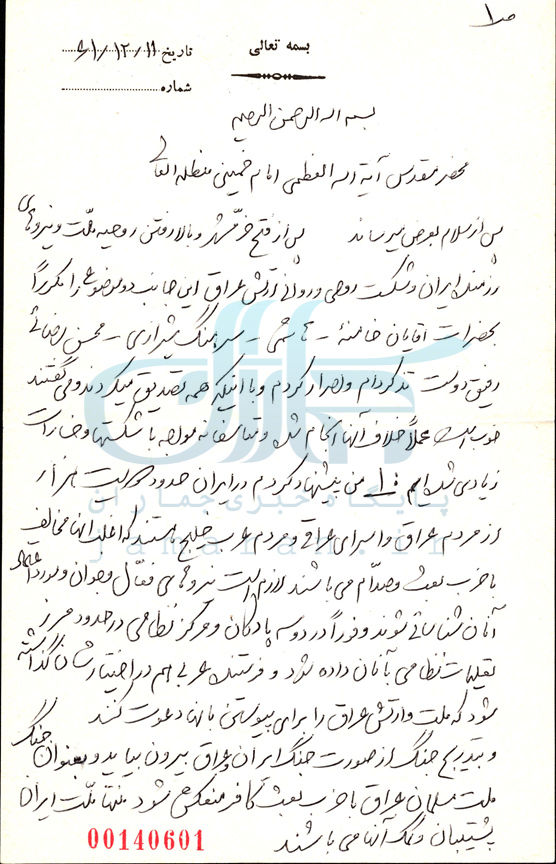 ص ۱
بسمه تعالی
تاریخ ۶۱/۱۲/۱۱
شماره
بسم اله الرحمن الرحیم
محضر مقدس آیة اله العظمی امام خمینی مدظله العالی
پس از سلام بعرض میرساند پس از فتح خرمشهر و بالا رفتن روحیه ملّت و نیروهای
رزمنده ایران و شکست روحی و روانی ارتش عراق این جانب دو موضوع را مکرراً
بحضرات آقایان خامنه‌ای - هاشمی - سرهنگ شیرازی - محسن رضائی
رفیق دوست تذکر دادم و اصرار کردم و با اینکه همه تصدیق میکردند و می گفتند
خوب است عملاً خلاف آنها انجام شد و متأسفانه مواجه با شکستها و خسارات
زیادی شده ایم ۱ - من پیشنهاد کردم در ایران حدود دویست هزار
از مردم عراق و اسرای عراقی و مردم عرب خلیج هستند که اغلب آنها مخالف
با حزب بعث و صدّام می باشند لازم است نیروهای فعّال و جوان و مورد اعتماد
آنان شناسائی شوند و فوراً در دو سه پادگان و مرکز نظامی در حدود مرز
تعلیمات نظامی بآنان داده شود و فرستنده عربی هم در اختیارشان گذاشته
شود که ملت و ارتش عراق را برای پیوستن بآنها دعوت کنند
و بتدریج جنگ از صورت جنگ ایران و عراق بیرون بیاید و بعنوان جنگ
ملت مسلمان عراق با حزب بعث کافر منعکس شود منتها ملّت ایران
پشتیبان و کمک آنها می باشند
پایگاه خبری جماران
jamaran.ir
00140601